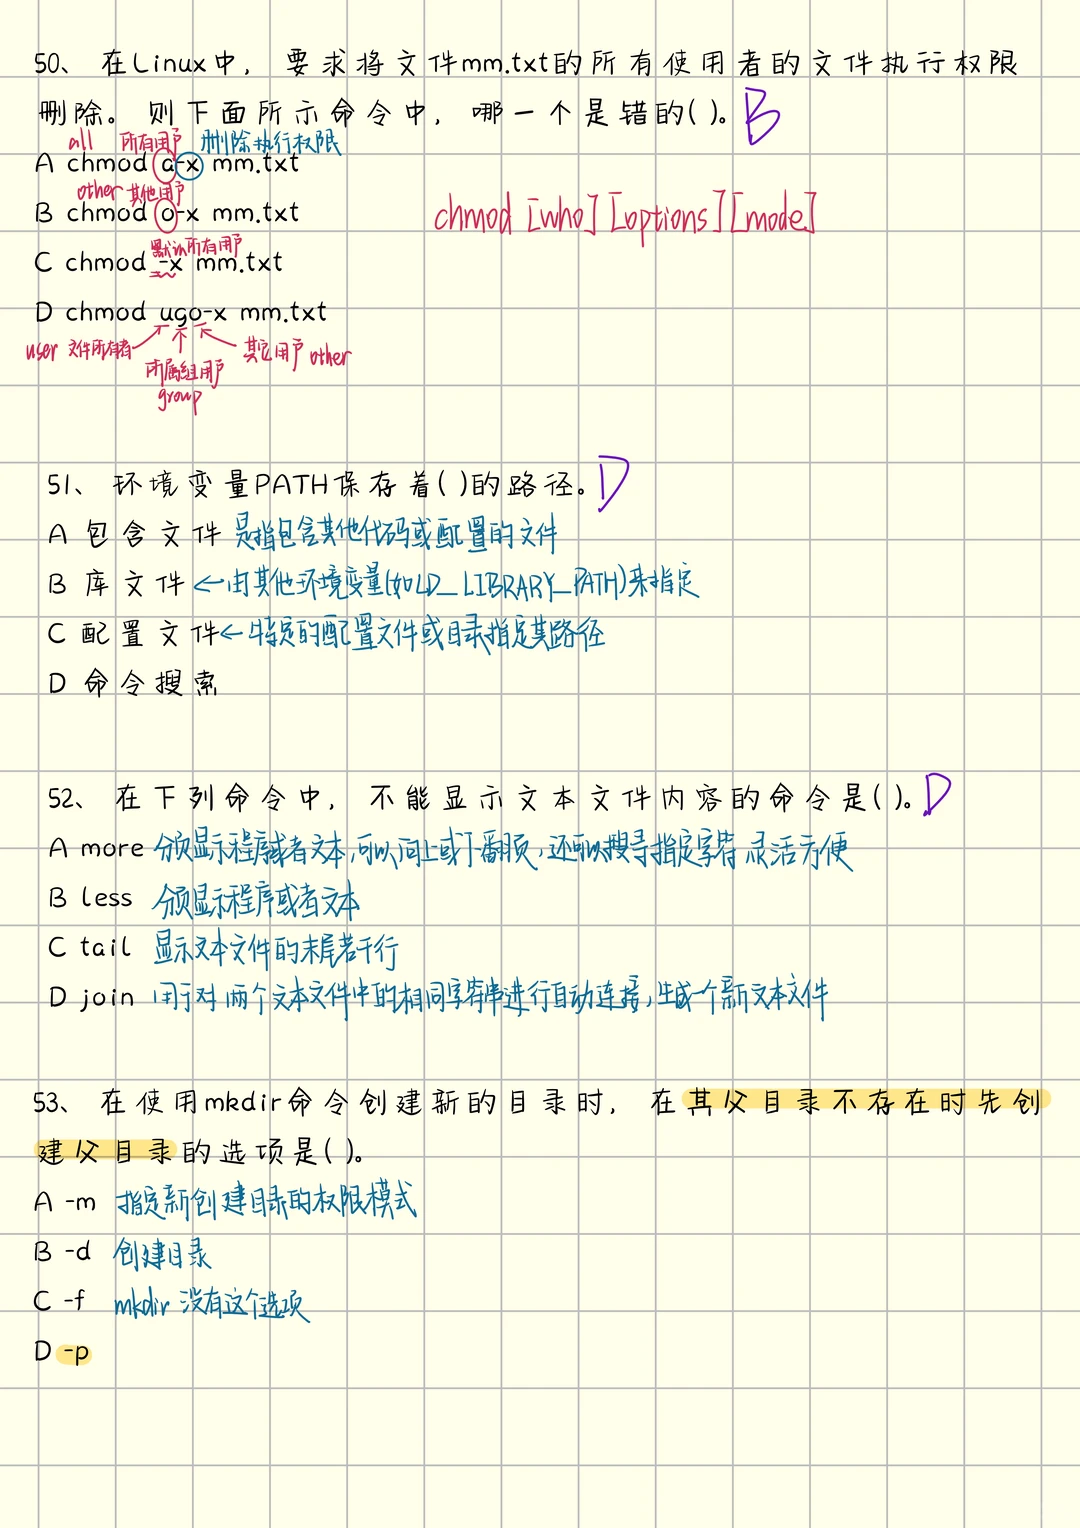 50、在Linux中，要求将文件mm.txt的所有使用者的文件执行权限
删除。则下面所示命令中，哪一个是错的( )。B
all 所有用户 删除执行权限
A chmod a-x mm.txt
other 其他用户
B chmod o-x mm.txt
chmod [who] [options] [mode]
默认所有用户
C chmod -x mm.txt
D chmod ugo-x mm.txt
user 文件所有者 其它用户 other
所属组用户
group
51、环境变量PATH保存着( )的路径。D
A 包含文件 是指包含其他代码或配置的文件
B 库文件 ←由其他环境变量(如LD_LIBRARY_PATH)来指定
C 配置文件←特定的配置文件或目录指定其路径
D 命令搜索
52、在下列命令中，不能显示文本文件内容的命令是( )。D
A more 分页显示程序或者文本,可以向上或下翻页,还可以搜寻指定字符,灵活方便
B less 分页显示程序或者文本
C tail 显示文本文件的末尾若干行
D join 用于对两个文本文件中的相同字符串进行自动连接,生成一个新文本文件
53、在使用mkdir命令创建新的目录时，在其父目录不存在时先创
建父目录的选项是( )。
A -m 指定新创建目录的权限模式
B -d 创建目录
C -f mkdir 没有这个选项
D -p